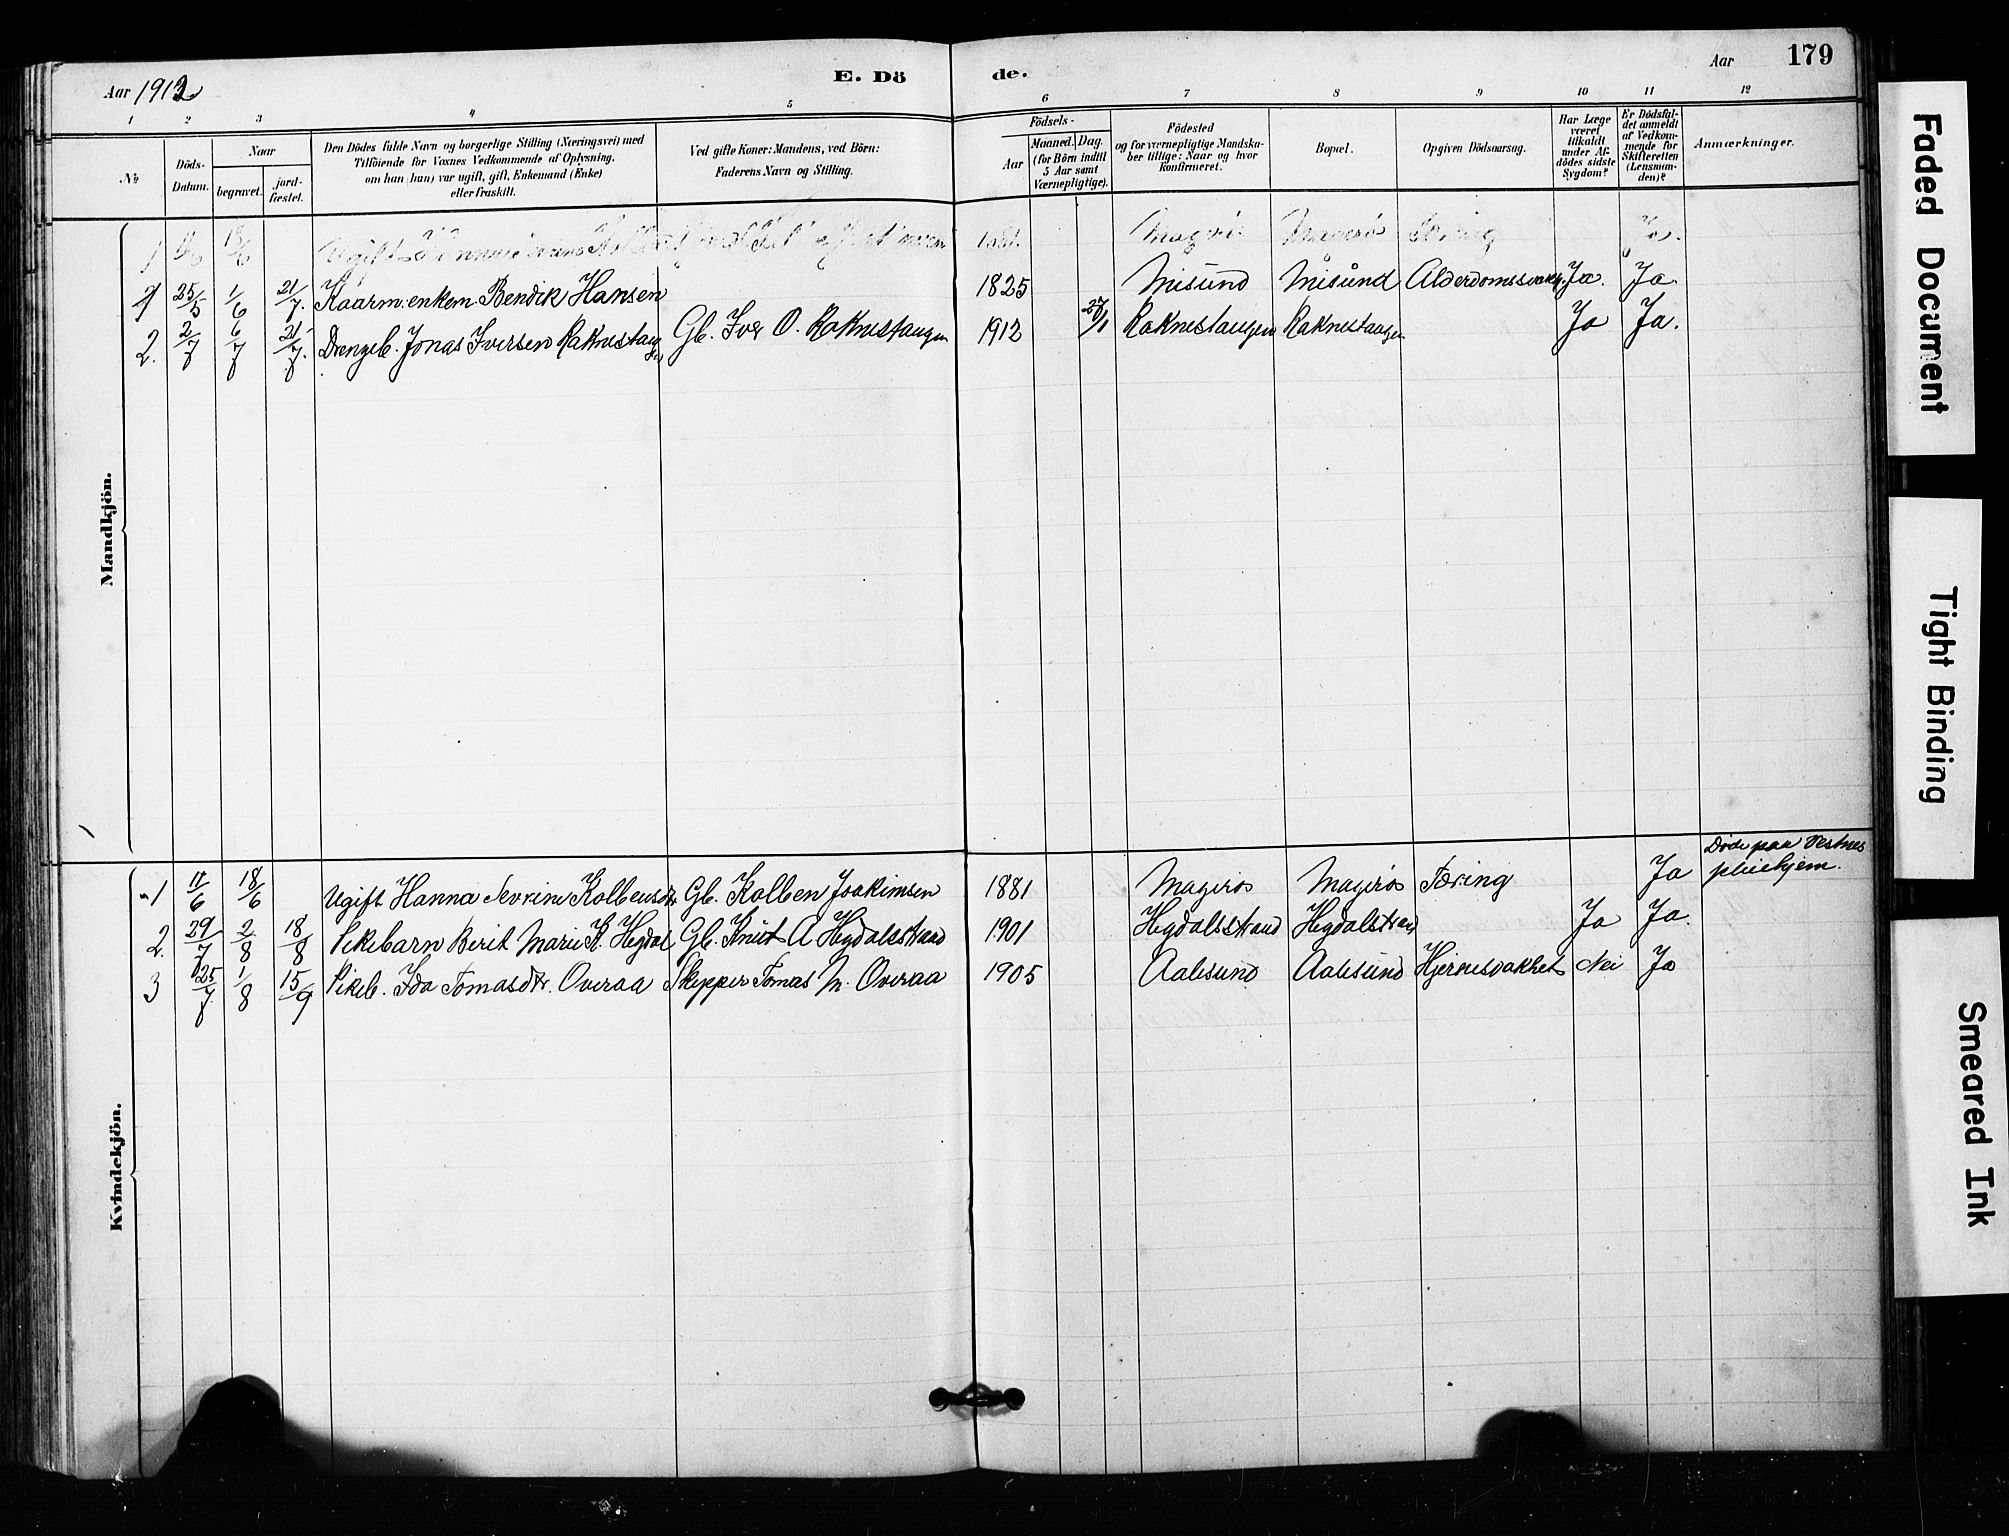 Aar 1912
E. Dö
de.
Aar
179
1 2 3 4 5 6 7 8 9 10 11 12
№
Döds-Datum.
Naar
begravet.
jord-fæstet.
Den Dödes fulde Navn og borgerlige Stilling (Næringsvei) med
Tilföiende for Voxnes Vedkommende af Oplysning,
om han (hun) var ugift, gift, Enkemand (Enke)
eller fraskilt.
Ved gifte Koner: Mandens, ved Börn:
Faderens Navn og Stilling.
Födsels-
Aar
Maaned. Dag.
(for Börn indtil
5 Aar samt
Værnepligtige).
Födested
og for værnepligtige Mandska-
ber tillige: Naar og hvor
Konfirmeret.
Bopæl.
Opgiven Dödsaarsag.
Har Læge
været
tilkaldt
under Af-
dödes sidste
Sygdom?
Er Dödsfal-
det anmeldt
af Vedkom-
mende for
Skifteretten
(Lensman-
den)?
Anmærkninger.
Mandkjön.
1 11/6 18/6 Ugift Ja.
1 25/5 1/6 21/7. Kaarm. enkem. Bendik Hansen 1825 Misund Misund Alderdomssvakh. Ja. Ja.
2. 2/7 6/7 21/7. Drengeb. Jonas Iversen Raknestangen Gb. Iver O. Raknestangen 1912 27/1 Raknestangen Raknestangen Ja Ja.
Kvindekjön.
Döde paa Vestnes
pleiehjem.
1 11/6 18/6 Ugift Hanna Sevrine Kolbensdtr Gb. Kolben Joakimsen 1881 Magerøs Magerøs Tæring Ja
2. 29/7 2/8 18/8 Pikebarn Berit Marie K. Hegdal Gb. Knut A Hegdalsstrand 1901 Hegdalsstrand Hegdalstrand Ja Ja.
3 25/7 1/8 15/9 Pikeb. Ida Tomasdtr. Overaa Skipper Tomas N. Overaa 1905 Aalesund Aalesund Hjertesvakhet Nei Ja
Faded Document
Tight Binding
Smeared Ink